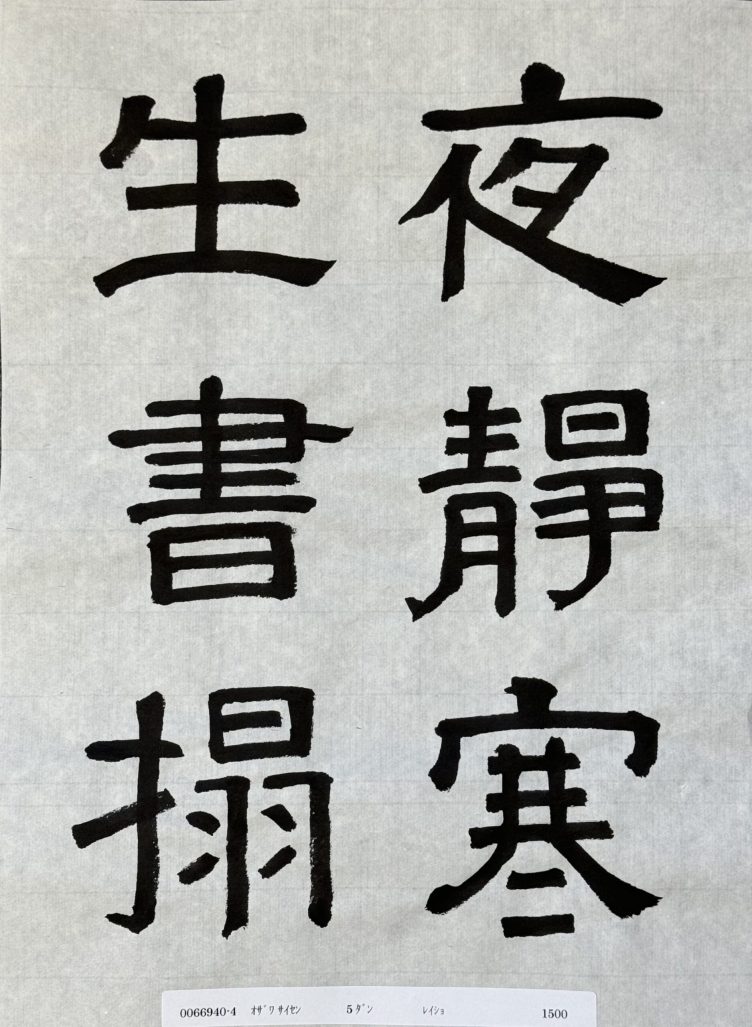 夜靜寒
生書搨
0066940-4 ｵｻﾞﾜ ｻｲｾﾝ 5ﾀﾞﾝ ﾚｲｼｮ 1500